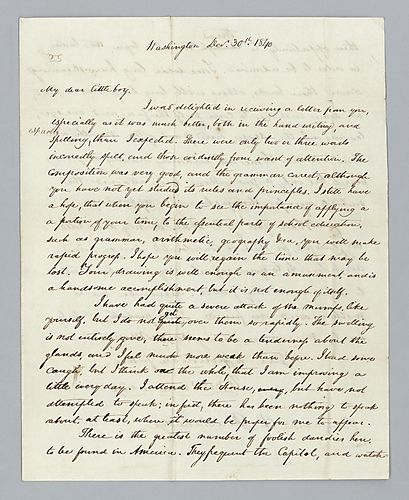 Washington Decr. 30th. 1840
My dear little boy.
I was delighted in receiving a letter from you,
especially as it was much better, both in the hand writing and
spelling, than I expected. There were only two or three words
incorrectly spelt, and those evidently from want of attention. The
composition was very good, and the grammar correct, although
you have not yet studied its rules and principles. I still have
a hope, that when you begin to see the importance of applying a
a portion of your time, to the essential parts of school education,
such as grammar, arithmetic, geography &ca, you will make
rapid progress. I hope you will regain the time that may be
lost. Your drawing is well enough as an amusement, and is
a handsome accomplishment, but it is not enough of itself.
I have had quite a severe attack of the mumps, like
yourself, but I do not get over them so rapidly. The swelling
is not entirely gone, there seems to be a tenderness about the
glands, and I felt much more weak than before. I had some
cough, but I think on the while, that I am improving a
little every day. I attend the House, but have not
attempted to speak; in fact, there has been nothing to speak
about, at least, where it would be proper for me to appear.
There is the greatest number of foolish dandies here,
to be found in America. They frequent the Capitol, and watch